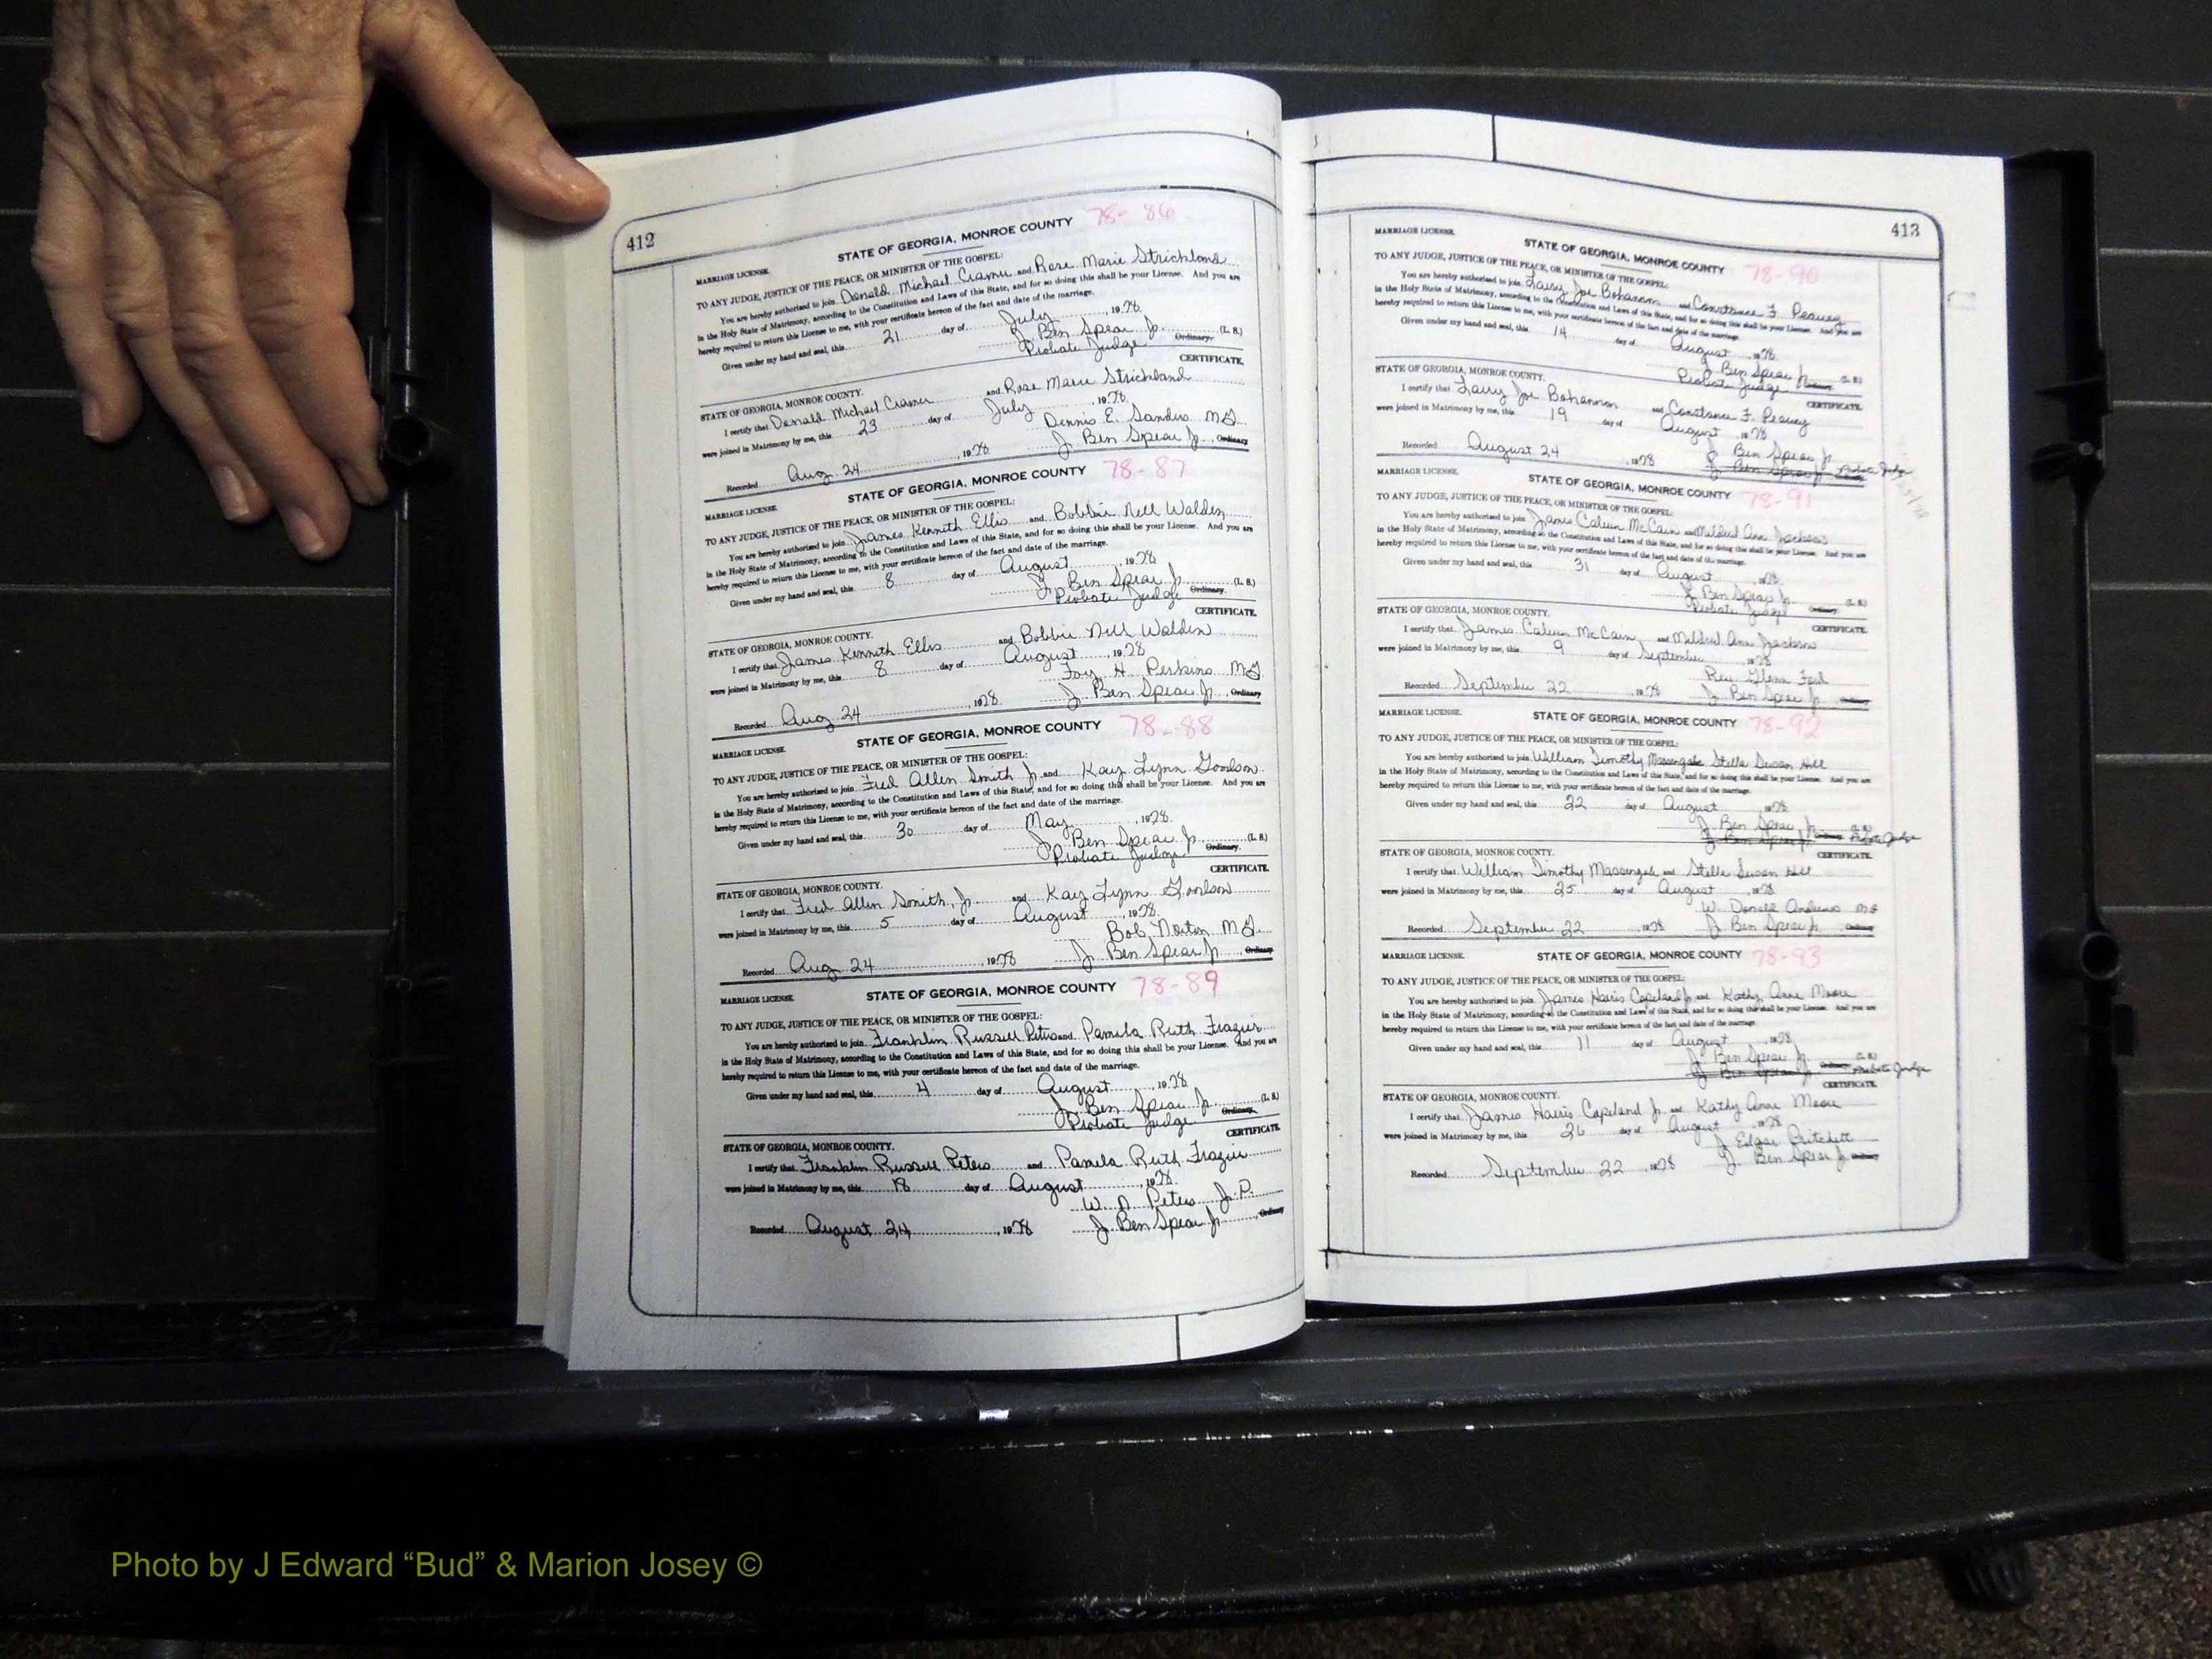 412
STATE OF GEORGIA, MONROE COUNTY 78-86
MARRIAGE LICENSE.
TO ANY JUDGE, JUSTICE OF THE PEACE, OR MINISTER OF THE GOSPEL:
You are hereby authorized to join Donald Michael Cramer and Rose Marie Strickland
in the Holy State of Matrimony, according to the Constitution and Laws of this State, and for so doing this shall be your License. And you are
hereby required to return this License to me, with your certificate hereon of the fact and date of the marriage.
Given under my hand and seal, this 21 day of July, 1978
J. Ben Spear Jr. (L. S.)
Probate Judge Ordinary.
CERTIFICATE.
STATE OF GEORGIA, MONROE COUNTY.
I certify that Donald Michael Cramer and Rose Marie Strickland
were joined in Matrimony by me, this 23 day of July, 1978.
Dennis E. Sanders MG
Recorded Aug 24, 1978 J. Ben Spear Jr., Ordinary
STATE OF GEORGIA, MONROE COUNTY 78-87
MARRIAGE LICENSE
TO ANY JUDGE, JUSTICE OF THE PEACE, OR MINISTER OF THE GOSPEL:
You are hereby authorized to join James Kenneth Ellis and Bobbie Nell Walden
in the Holy State of Matrimony, according to the Constitution and Laws of this State, and for so doing this shall be your License. And you are
hereby required to return this License to me, with your certificate hereon of the fact and date of the marriage.
Given under my hand and seal, this 8 day of August, 1978
J. Ben Spear Jr. (L. S.)
Probate Judge Ordinary.
CERTIFICATE.
STATE OF GEORGIA, MONROE COUNTY.
I certify that James Kenneth Ellis and Bobbie Nell Walden
were joined in Matrimony by me, this 8 day of August, 1978
Foy H. Perkins MG
Recorded Aug 24, 1978 J. Ben Spear Jr., Ordinary
STATE OF GEORGIA, MONROE COUNTY 78-88
MARRIAGE LICENSE
TO ANY JUDGE, JUSTICE OF THE PEACE, OR MINISTER OF THE GOSPEL:
You are hereby authorized to join Fred Allen Smith Jr. and Kay Lynn Goodson
in the Holy State of Matrimony, according to the Constitution and Laws of this State, and for so doing this shall be your License. And you are
hereby required to return this License to me, with your certificate hereon of the fact and date of the marriage.
Given under my hand and seal, this 30 day of May, 1978.
J. Ben Spear Jr. (L. S.)
Probate Judge Ordinary.
CERTIFICATE.
STATE OF GEORGIA, MONROE COUNTY.
I certify that Fred Allen Smith, Jr. and Kay Lynn Goodson
were joined in Matrimony by me, this 5 day of August, 1978.
Bob Norton MG
Recorded Aug 24, 1978 J. Ben Spear Jr., Ordinary
STATE OF GEORGIA, MONROE COUNTY 78-89
MARRIAGE LICENSE
TO ANY JUDGE, JUSTICE OF THE PEACE, OR MINISTER OF THE GOSPEL:
You are hereby authorized to join Franklin Russell Peters and Pamela Ruth Frazier
in the Holy State of Matrimony, according to the Constitution and Laws of this State, and for so doing this shall be your License. And you are
hereby required to return this License to me, with your certificate hereon of the fact and date of the marriage.
Given under my hand and seal, this 4 day of August, 1978
J. Ben Spear Jr. (L. S.)
Probate Judge Ordinary.
CERTIFICATE.
STATE OF GEORGIA, MONROE COUNTY.
I certify that Franklin Russell Peters and Pamela Ruth Frazier
were joined in Matrimony by me, this 18 day of August, 1978.
W. D. Peters J.P.
Recorded August 24, 1978 J. Ben Spear Jr., Ordinary
413
MARRIAGE LICENSE.
STATE OF GEORGIA, MONROE COUNTY 78-90
TO ANY JUDGE, JUSTICE OF THE PEACE, OR MINISTER OF THE GOSPEL:
You are hereby authorized to join Larry Joe Bohannon and Constance F. Peavey
in the Holy State of Matrimony, according to the Constitution and Laws of this State, and for so doing this shall be your License. And you are
hereby required to return this License to me, with your certificate hereon of the fact and date of the marriage.
Given under my hand and seal, this 14 day of August, 1978
J. Ben Spear Jr. (L. S.)
Probate Judge Ordinary.
STATE OF GEORGIA, MONROE COUNTY. CERTIFICATE.
I certify that Larry Joe Bohannon and Constance F. Peavey
were joined in Matrimony by me, this 19 day of August, 1978
J. Ben Spear Jr.
Recorded August 24, 1978 J. Ben Spear Jr. Probate Judge
MARRIAGE LICENSE.
STATE OF GEORGIA, MONROE COUNTY 78-91
TO ANY JUDGE, JUSTICE OF THE PEACE, OR MINISTER OF THE GOSPEL:
You are hereby authorized to join James Calvin McCain and Mildred Ann Jackson
in the Holy State of Matrimony, according to the Constitution and Laws of this State, and for so doing this shall be your License. And you are
hereby required to return this License to me, with your certificate hereon of the fact and date of the marriage.
Given under my hand and seal, this 31 day of August, 1978
J. Ben Spear Jr. (L. S.)
Probate Judge Ordinary.
STATE OF GEORGIA, MONROE COUNTY. CERTIFICATE.
I certify that James Calvin McCain and Mildred Ann Jackson
were joined in Matrimony by me, this 9 day of September, 1978
Rev. Glenn
Recorded September 22, 1978 J. Ben Spear Jr., Ordinary
MARRIAGE LICENSE.
STATE OF GEORGIA, MONROE COUNTY 78-92
TO ANY JUDGE, JUSTICE OF THE PEACE, OR MINISTER OF THE GOSPEL:
You are hereby authorized to join William Timothy Massengale Stella Susan Hill
in the Holy State of Matrimony, according to the Constitution and Laws of this State, and for so doing this shall be your License. And you are
hereby required to return this License to me, with your certificate hereon of the fact and date of the marriage.
Given under my hand and seal, this 22 day of August, 1978
J. Ben Spear Jr. (L. S.)
J. Ben Spear Jr. Ordinary Probate Judge
STATE OF GEORGIA, MONROE COUNTY. CERTIFICATE.
I certify that William Timothy Massengale and Stella Susan Hill
were joined in Matrimony by me, this 25 day of August, 1978
W. Donald Andrews MG
Recorded September 22, 1978 J. Ben Spear Jr., Ordinary
MARRIAGE LICENSE.
STATE OF GEORGIA, MONROE COUNTY 78-93
TO ANY JUDGE, JUSTICE OF THE PEACE, OR MINISTER OF THE GOSPEL:
You are hereby authorized to join James Harris Copeland Jr. and Kathy Anne Moore
in the Holy State of Matrimony, according to the Constitution and Laws of this State, and for so doing this shall be your License. And you are
hereby required to return this License to me, with your certificate hereon of the fact and date of the marriage.
Given under my hand and seal, this 11 day of August, 1978
J. Ben Spear Jr. (L. S.)
J. Ben Spear Jr. Ordinary Probate Judge
CERTIFICATE.
STATE OF GEORGIA, MONROE COUNTY.
I certify that James Harris Copeland Jr. and Kathy Anne Moore
were joined in Matrimony by me, this 26 day of August, 1978
J. Edgar Pritchett
Recorded September 22, 1978 J. Ben Spear Jr. Ordinary
Photo by J Edward “Bud” & Marion Josey ©